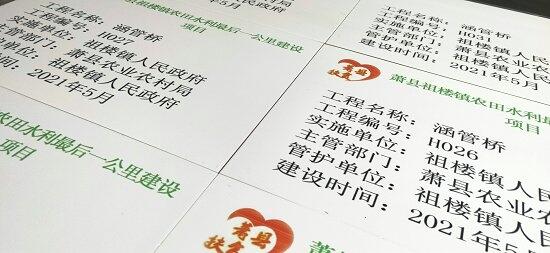 祖楼镇农田水利最后一公里建设
项目
工程名称:
工程编号: H057
实施单位: 祖楼镇人民政府
主管部门: 萧县农业农村局
管护单位: 祖楼镇人民政府
建设时间: 2021年5月
工程名称: 涵管桥
工程编号: H031
实施单位: 祖楼镇人
主管部门: 萧县农业农
管护单位: 祖楼镇人民
建设时间: 2021年5月
农田水利最后一公里建设
项目
萧县
扶贫
萧县祖楼镇农田水利最
项目
工程名称: 涵管桥
工程编号: H026
实施单位: 祖楼镇人民
主管部门: 萧县农业农
管护单位: 祖楼镇人民
建设时间: 2021年5月
萧县
扶贫
萧县
工程名